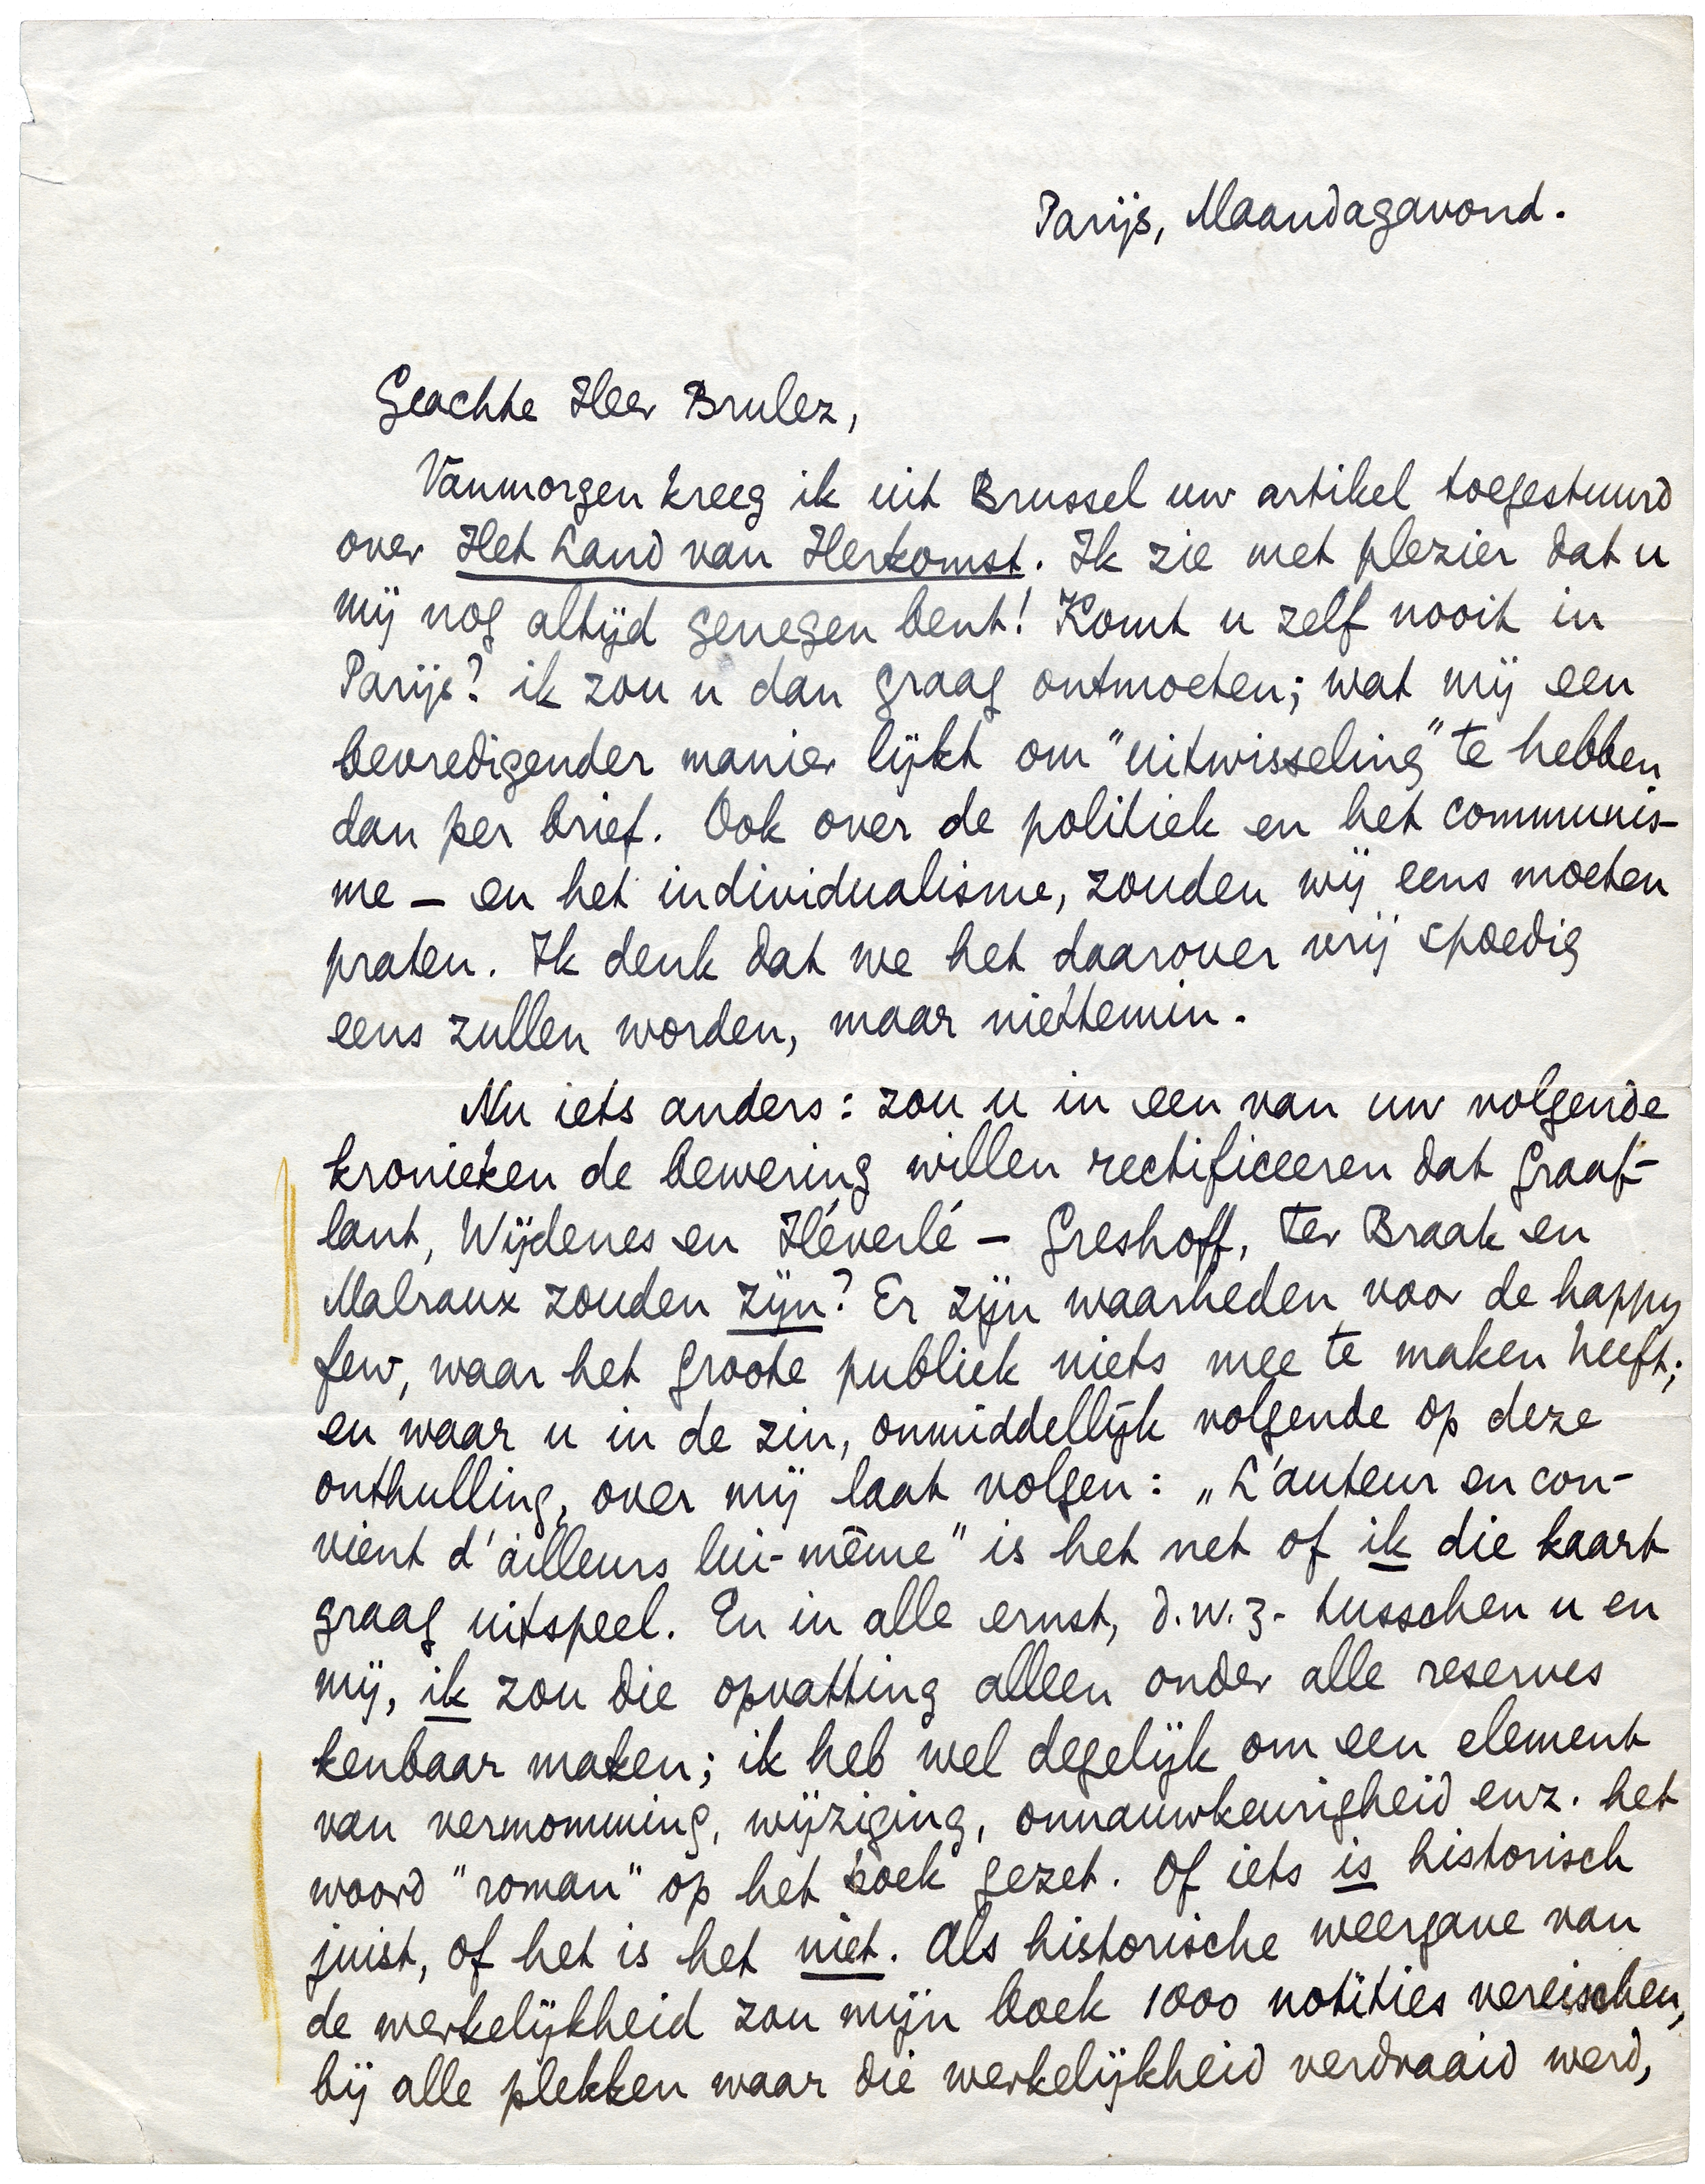 Parijs, Maandagavond.
Geachte Heer Brulez,
Vanmorgen kreeg ik uit Brussel uw artikel toegestuurd
over Het Land van Herkomst. Ik zie met plezier dat u
mij nog altijd genegen bent! Komt u zelf nooit in
Parijs? ik zou u dan graag ontmoeten; wat mij een
bevredigender manier lijkt om "uitwisseling" te hebben
dan per brief. Ook over de politiek en het communis-
me – en het individualisme, zouden wij eens moeten
praten. Ik denk dat we het daarover vrij spoedig
eens zullen worden, maar niettemin.
Nu iets anders: zou u in een van uw volgende
kronieken de bewering willen rectificeeren dat Graaf-
lant, Wijdenes en Héverlé – Greshoff, ter Braak en
Malraux zouden zijn? Er zijn waarheden voor de happy
few, waar het groote publiek niets mee te maken heeft;
en waar u in de zin, onmiddellijk volgende op deze
onthulling, over mij laat volgen: „L'auteur en con-
vient d'ailleurs lui-même" is het net of ik die kaart
graag uitspeel. En in alle ernst, d.w.z. tusschen u en
mij, ik zou die opvatting alleen onder alle reserves
kenbaar maken; ik heb wel degelijk om een element
van vermomming, wijziging, onnauwkeurigheid enz. het
woord "roman" op het boek gezet. Of iets is historisch
juist, of het is het niet. Als historische weergave van
de werkelijkheid zou mijn boek 1000 notities vereischen,
bij alle plekken waar die werkelijkheid verdraaid werd,